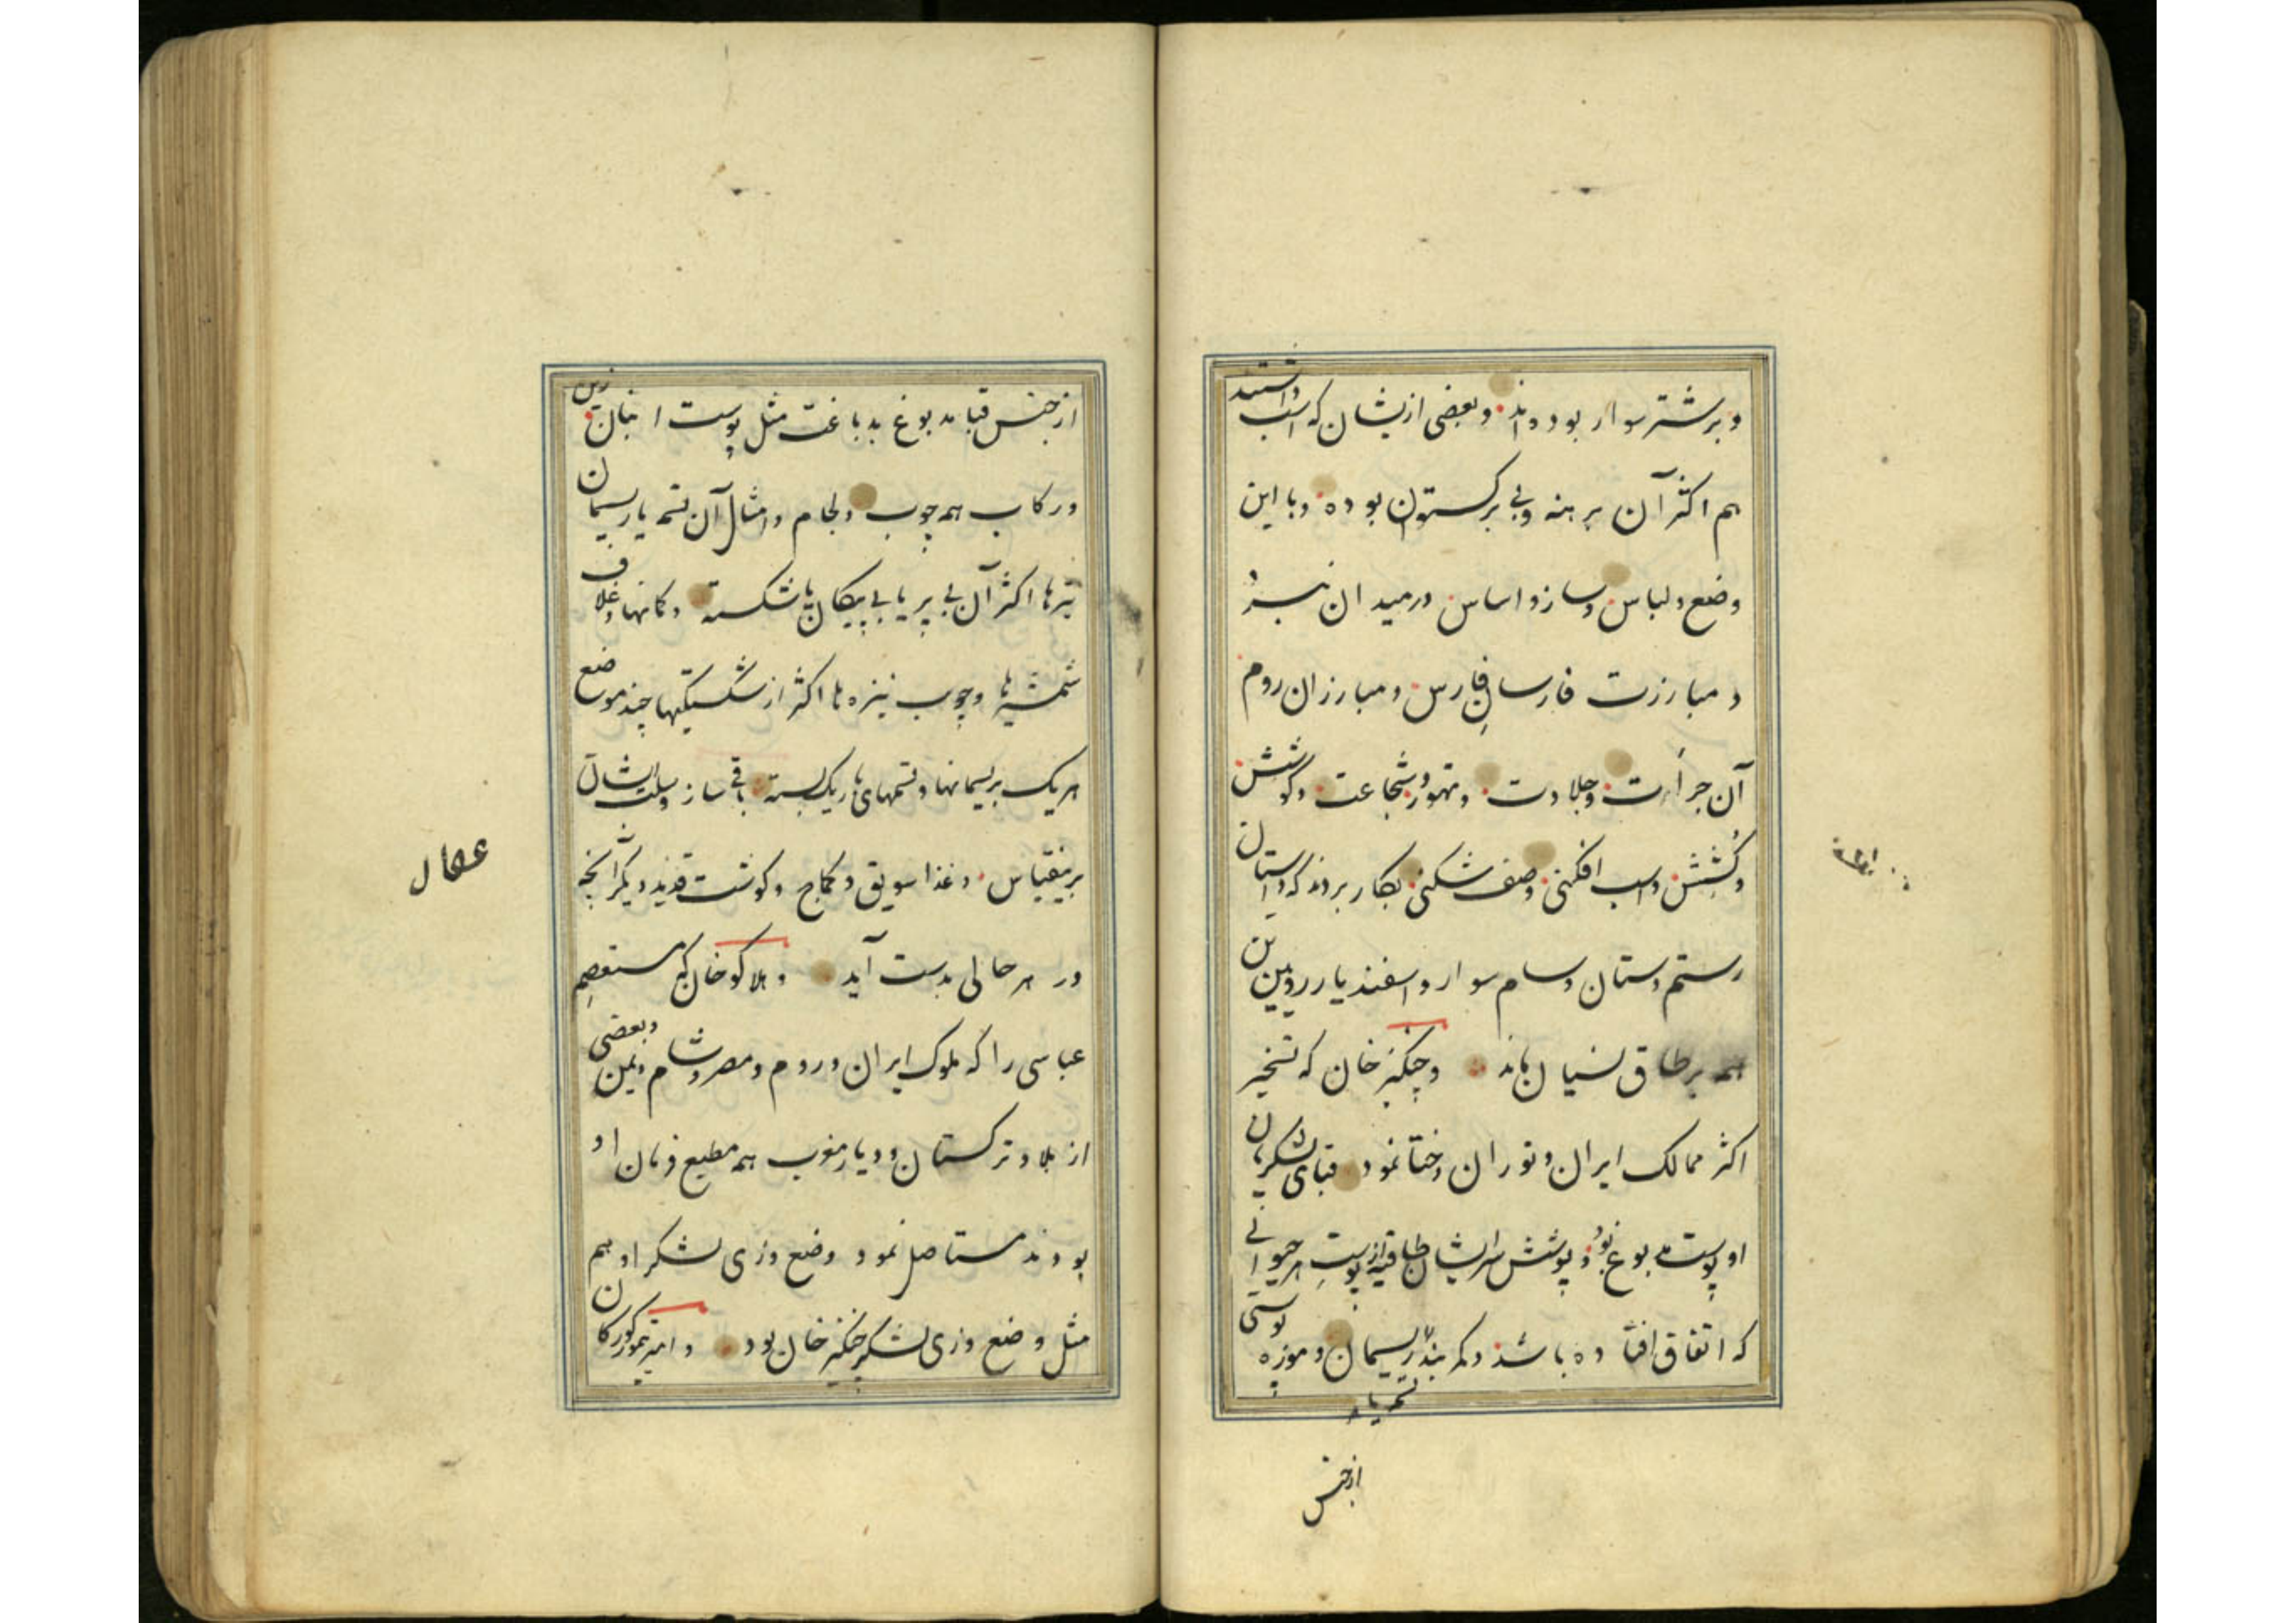 و بر شتر سوار بوده‌اند و بعضی ازیشان که اسب داشتند
هم اکثر آن برهنه و بی برکستوان بوده و با این
وضع و لباس و ساز و اساس در میدان نبرد
و مبارزت فارسان فارس و مبارزان روم
آن جرأت و جلادت و تهور و شجاعت و کوشش
و کشش و اسب افکنی و صف شکنی بکار بردند که داستان
رستم دستان و سام سوار و اسفندیار رویین تن
همه بر طاق نسیان ماند و چنکیز خان که تسخیر
اکثر ممالک ایران و توران و ختا نمود قبای لشکریان
او پوست مدبوغ بود و پوشش سر ایشان طاقیه از پوست هر حیوانی
که اتفاق افتاده باشد و کمربند ریسمان و موزه پوستی
تسمه یا
از جنس
از جنس قبا مدبوغ بدباغت مثل پوست انبان زین
و رکاب همه چوب و لجام و امثال آن تسمه یا ریسمان
تیرها اکثر آن بی پر یا بی پیکان یا شکسته و کمانها و غلاف
شمشیرها و چوب نیزه‌ها اکثر از شکستکیها چند موضع
هر یک بریسمانها و تسمهای باریک بسته باقی ساز و سلب ایشان
برینقیاس و غذا سویق و کماج و کوشت قدید و دیکر آنچه
در هر حالی بدست آید و هلاکو خان که مستعصم
عباسی را که ملوک ایران و روم و مصر و شام و یمن و بعضی
از بلاد ترکستان و دیار مغرب همه مطیع فرمان او
بودند مستاصل نمود وضع و زی لشکر او هم
مثل وضع و زی لشکر چنکیز خان بود و امیر تیمور کورکان